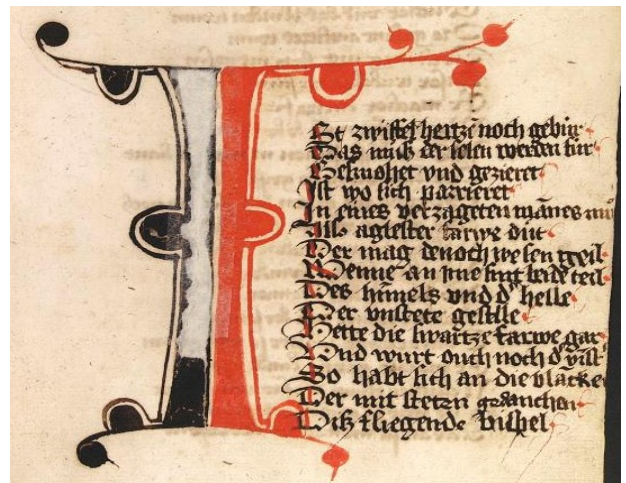 ISt zwiffel hertzē noch gebur
Das muß der selen werden sur
Gesmohet vnd gezieret
Ist wo sich parrieret
In eines verzageten mānes
Also aglester farwe dut
Der mag denoch wesen geil
Wenne an jme sint beide teil
Des himels vnd d' helle
Der vnstete geselle
Hette die swartze farwe gar
Vnd wurt ouch noch d'
So habt sich an die blācke
Der mit steten
Diß fliegende bispel